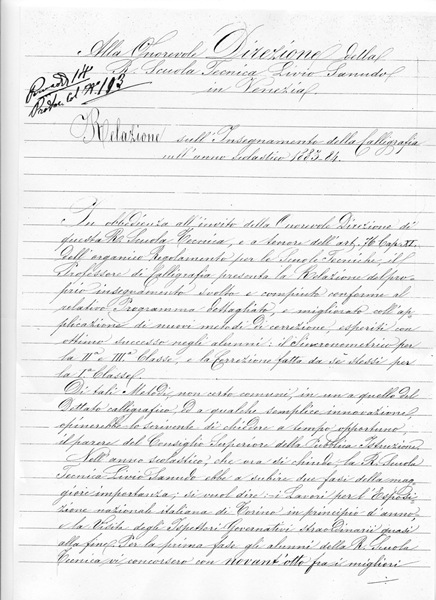 Alla Onorevole Direzione della
R. Scuola Tecnica Livio Sanudo
in Venezia
Prot. Col N.º 193
Relazione sull'Insegnamento della Calligrafia
nell'anno scolastico 1883-84.
In obbedienza all'invito della Onorevole Direzione di
questa R. Scuola Tecnica, e a tenore dell'art. 76 Cap. XI.
dell'organico Regolamento per le Scuole Tecniche, il
Professore di Calligrafia presenta la Relazione del pro-
prio insegnamento svolto e compiuto conforme al
relativo Programma dettagliato, e migliorato coll'ap-
plicazione di nuovi metodi di correzione, esperiti con
ottimo successo negli alunni: il
per
la IIª e IIIª Classe, e la Correzione fatta da sè stessi per
la Iª Classe.
Di tali Metodi, non certo comuni, in un a quello del
Dettato calligrafico, ed a qualche semplice innovazione,
opinerebbe lo scrivente di chiedere a tempo opportuno
il parere del Consiglio Superiore della Pubblica Istruzione.
Nell'anno scolastico, che ora si chiude, la R. Scuola
Tecnica Livio Sanudo ebbe a subire due fasi della mag-
giore importanza; si vuol dire: i Lavori per l'Esposi-
zione nazionale italiana di Torino in principio d'anno
e la Visita degli Ispettori Governativi straordinarii quasi
alla fine. Per la prima fase gli alunni della R. Scuola
Tecnica vi concorsero con novant'otto fra i migliori